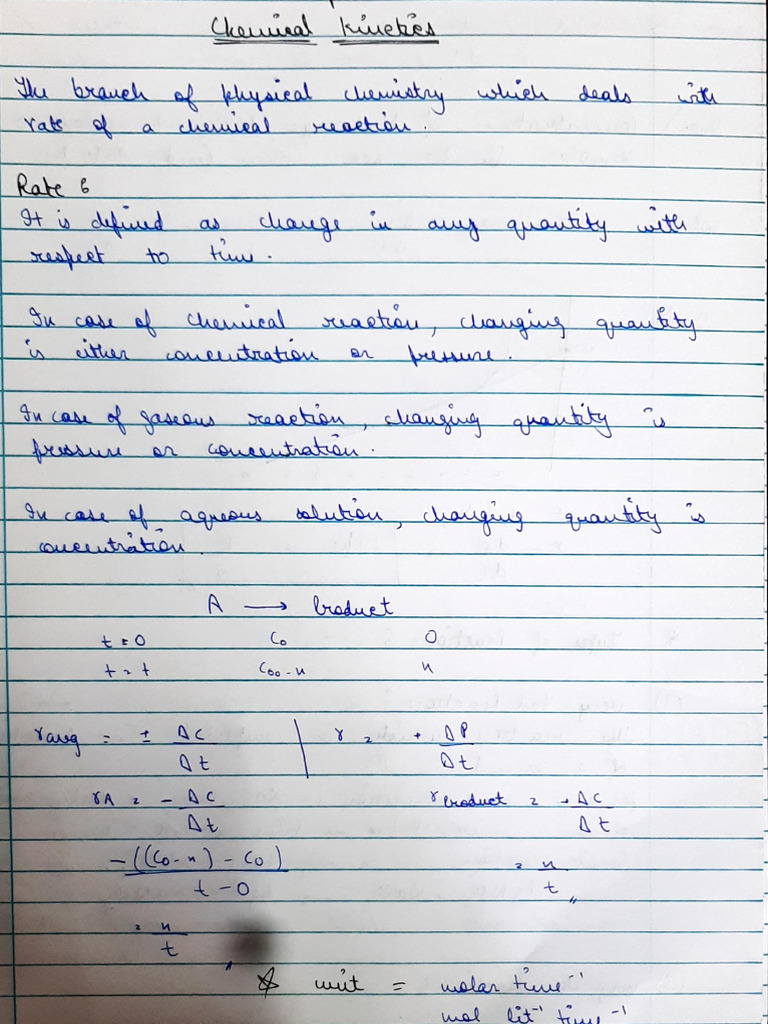 Chemical Kinetics
The branch of physical chemistry which deals with
rate of a chemical reaction.
Rate :
It is defined as change in any quantity with
respect to time.
In case of chemical reaction, changing quantity
is either concentration or pressure.
In case of gaseous reaction, changing quantity is
pressure or concentration.
In case of aqueous solution, changing quantity is
concentration.
A → Product
t = 0 C₀ 0
t = t C₀₀ - x x
r avg = ± ΔC/Δt | r = + ΔP/Δt
rA = - ΔC/Δt r Product = + ΔC/Δt
-((C₀ - x) - C₀)/(t - 0) = x/t ,,
= x/t ,,
☆ unit = molar time⁻¹
mol lit⁻¹ time⁻¹